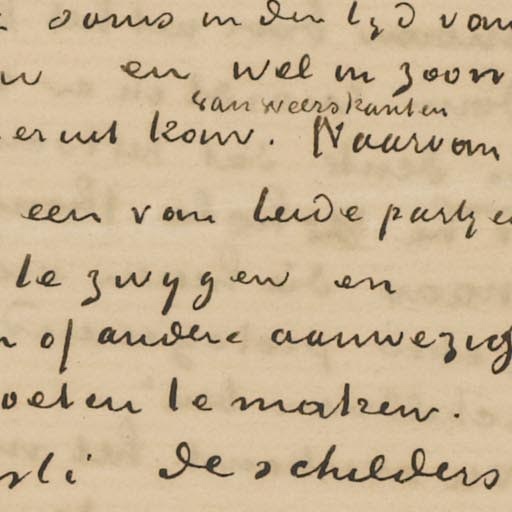 soms in den tyd van
en wel in zoon
van weerskanten
eruit kour. Waarvan
een van beide partye
te zwygen en
of andere aanwezig
oeten te maken.
de schilders